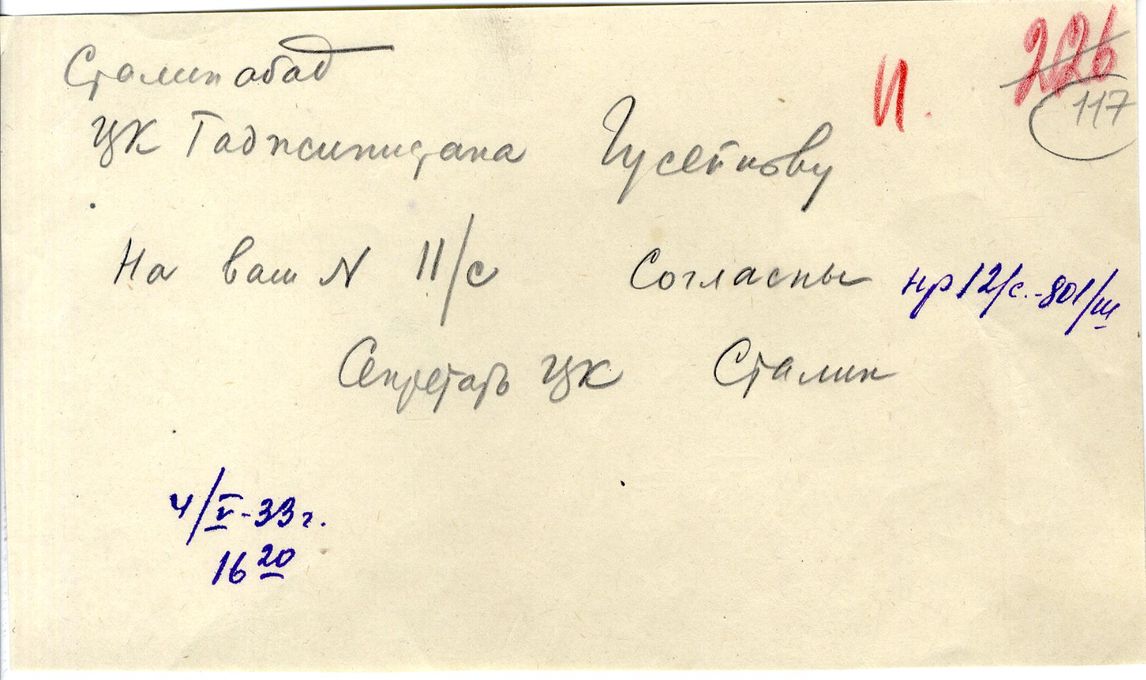 И. 226
117
Сталинабад
ЦК Таджикистана Гусейнову
На ваш N 11/с Согласны нр 12/с.-801/ш
Секретарь ЦК Сталин
4/V-33 г.
16 20